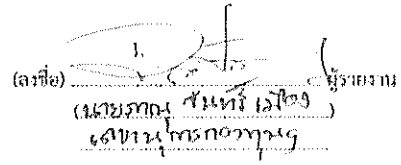 (ลงชื่อ) ผู้รายงาน
(นายภาณุ จันทร์
เลขานุการกองทุนฯ